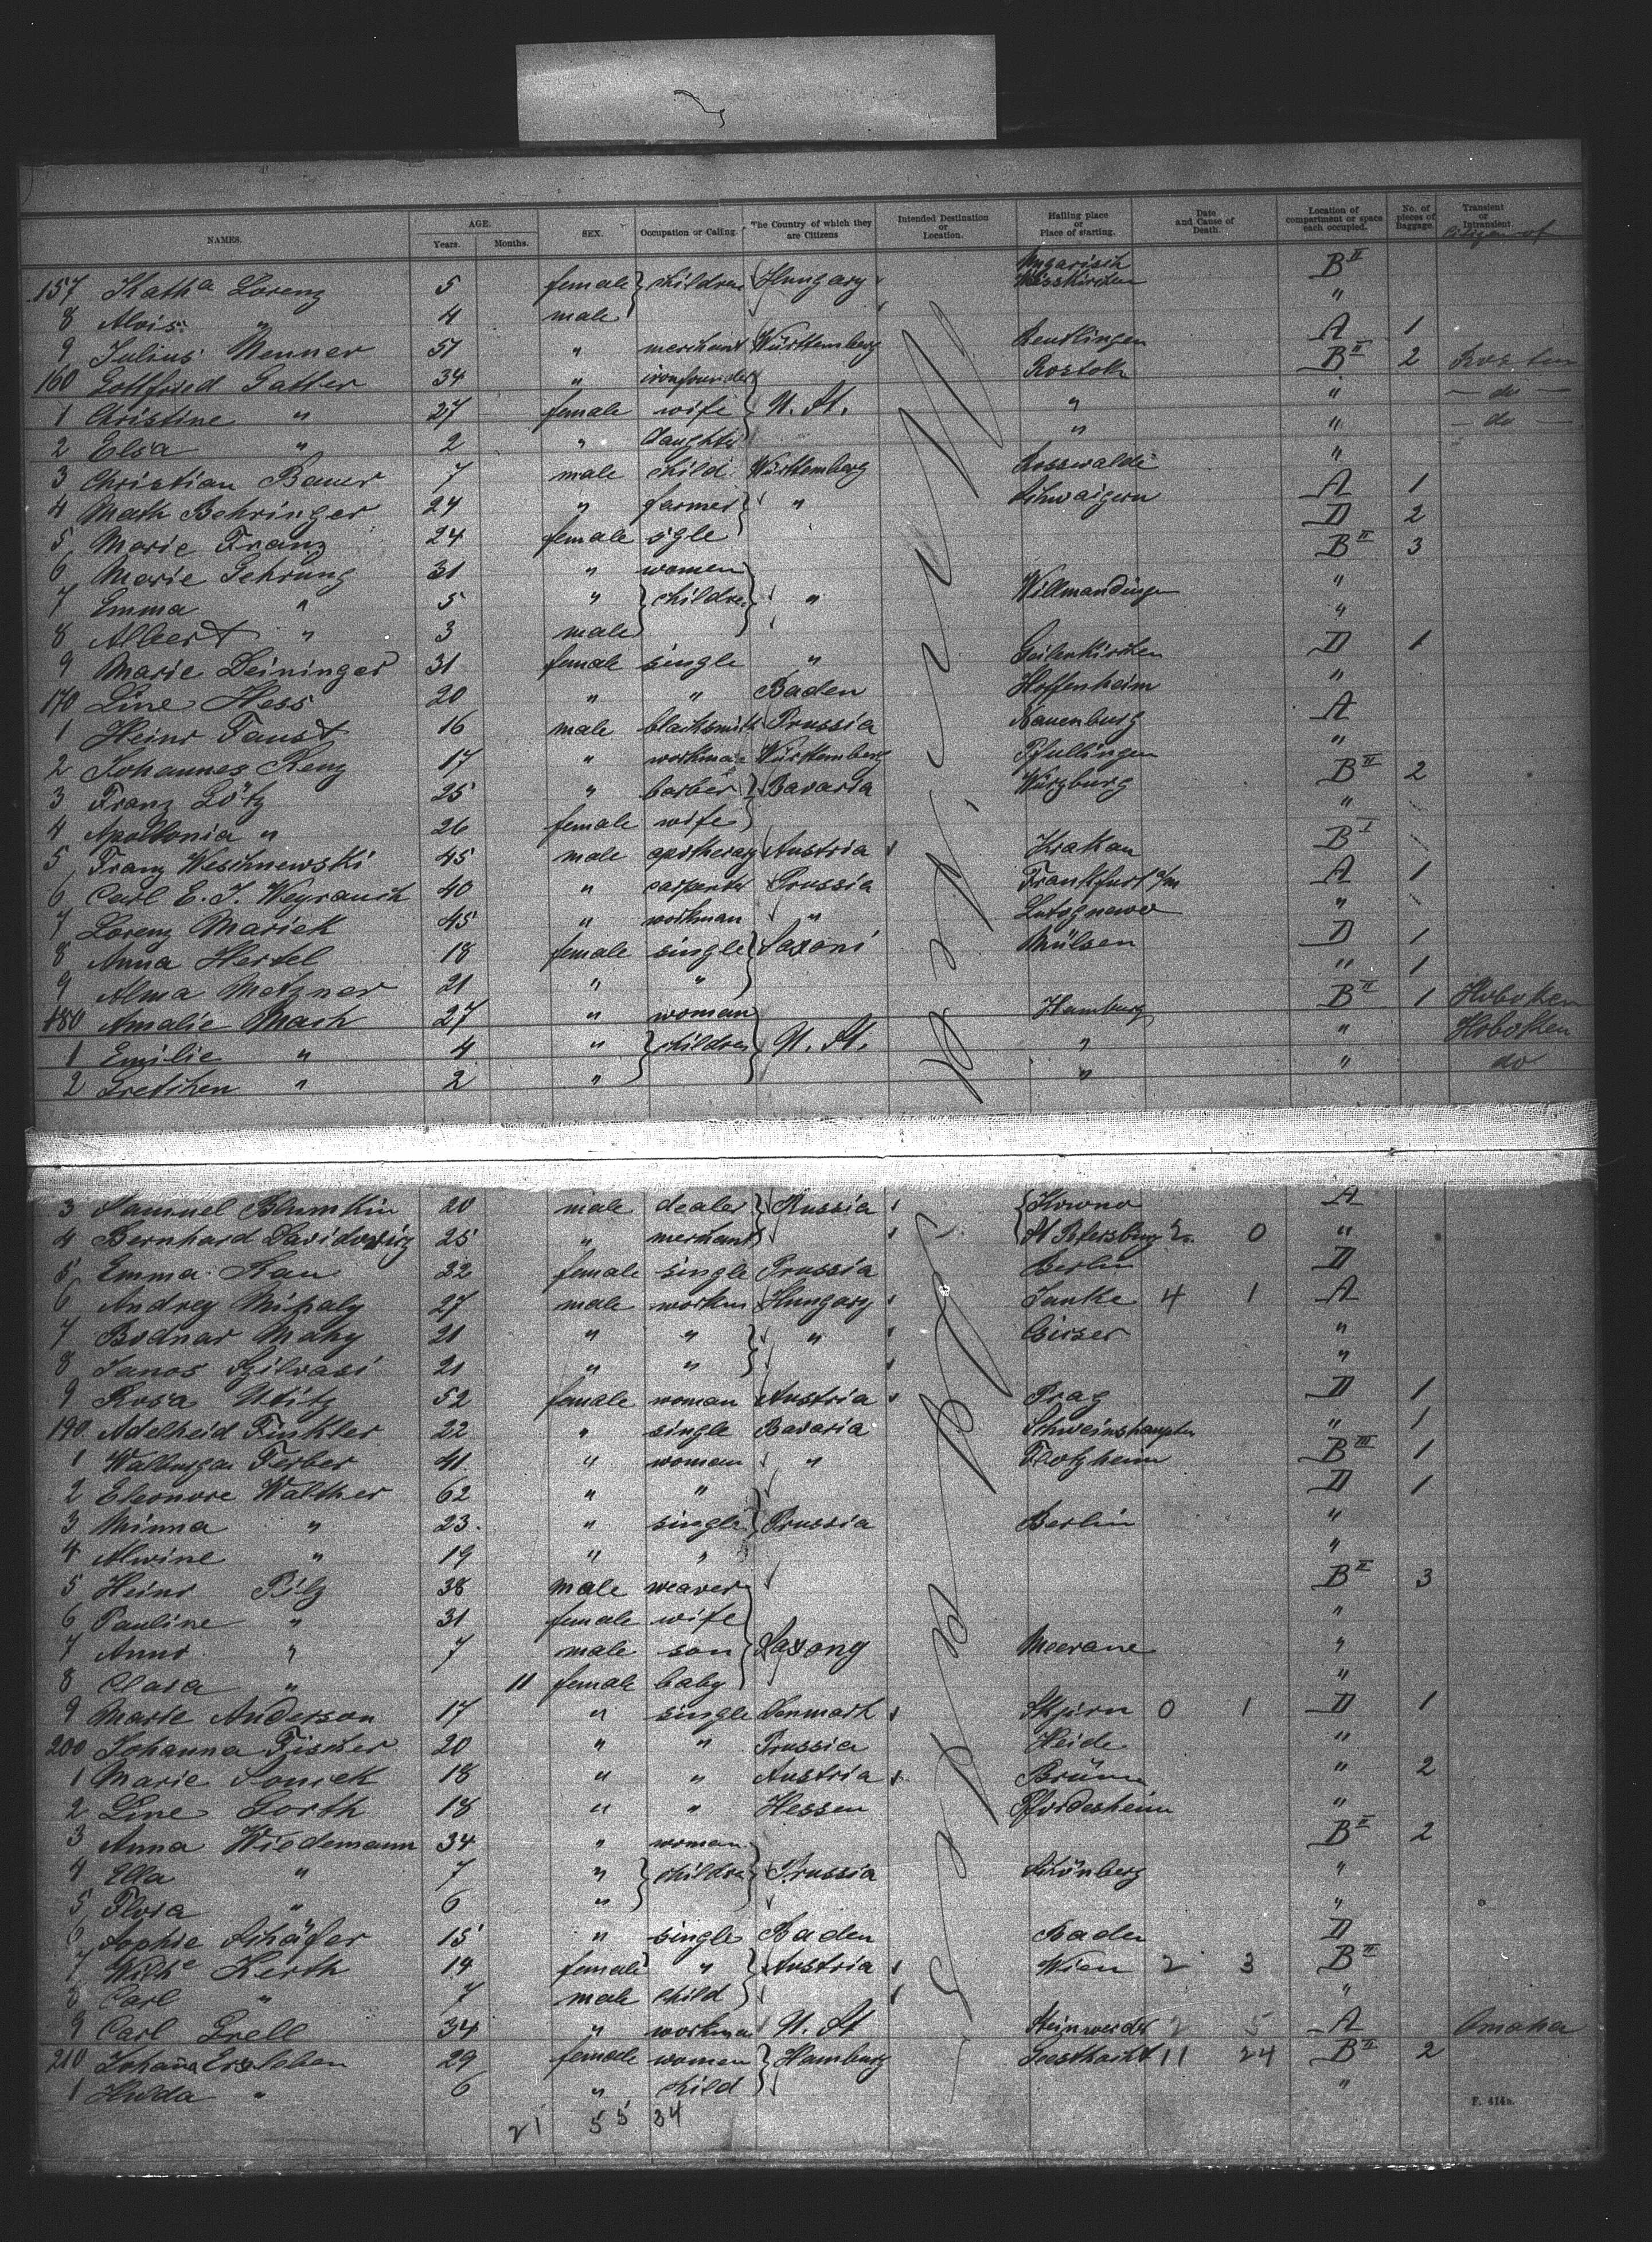 NAMES. AGE. Years. Months. SEX. Occupation or Calling. The Country of which they are Citizens Intended Destination or Location. Hailing place or Place of starting. Date and Cause of Death. Location of compartment or space each occupied. No. of pieces of Baggage. Transient or Intransient.
157 Katha Lorenz 5 female } children Hungary Ungarisch Weisskirchen B II
8 Alois " 4 male "
9 Julius Menner 51 " merchant Württemberg Reutlingen A 1
160 Gottfried Gatter 34 " ironfounder Rostok B II 2
1 Christine " 27 female wife } U. St. " " - do -
2 Elsa " 2 " daughter " " - do -
3 Christian Bauer 7 male child Württemberg Rosswalde "
4 Math Behringer 24 " farmer } " Schwaigern A 1
5 Marie Franz 24 female sgle D 2
6 Marie Gehrung 31 " women B II 3
7 Emma " 5 " } children } " Willmandingen "
8 Albert " 3 male "
9 Marie Deininger 31 female single " Geilenkirchen D 1
170 Line Hess 20 " " Baden Hoffenheim "
1 Heinr Faust 16 male blacksmith Prussia Rauenburg A
2 Johannes Renz 17 " workman Württemberg Pfullingen "
3 Franz Götz 25 " barber } Bavaria Würzburg B II 2
4 Apollonia " 26 female wife "
5 Franz Weschnewski 45 male apothecary Austria Krakau B I
6 Carl E. J. Weyrauch 40 " carpenter Prussia Frankfurt a/m A 1
7 Lorenz Mariek 45 " workman " Lutognewo "
8 Anna Hertel 18 female single } Saxoni Mülsen D 1
9 Alma Metzner 21 " " " 1
180 Amalie Mach 27 " woman Hamburg B II 1 Hoboken
1 Emilie " 4 " } children } U. St. " " Hoboken
2 Gretchen " 2 " " " do
3 Samuel Blumkin 20 male dealer } Russia { Kowno A
4 Bernhard Davidowicz 25 " merchant St Petersburg 2 0 "
5 Emma Rau 32 female single Prussia Berlin D
6 Andrey Mihaly 27 male workm Hungary Janke 4 1 A
7 Bodnar Mahy 21 " " } " "
8 Janos Szilvasi 21 " " "
9 Rosa Utitz 52 female woman Austria Prag D 1
190 Adelheid Finkler 22 " single Bavaria Schweinshaupten " 1
1 Walburga Ferber 41 " woman " Flotzheim B III 1
2 Eleonore Walther 62 " " D 1
3 Minna " 23 " single } Prussia Berlin "
4 Alwine " 19 " " "
5 Heinr Pilz 38 male weaver B II 3
6 Pauline " 31 female wife "
7 " 7 male son } Saxony Meerane "
8 Clara " 11 female baby "
9 Marie Anderson 17 " single Denmark Skjern 0 1 D 1
200 Johanna Fischer 20 " " Prussia Heide "
1 Marie Soniek 18 " " Austria Brünn " 2
2 Line Gorth 18 " " Hessen Pfordesheim "
3 Anna Wiedemann 34 " woman B II 2
4 Ella " 7 " } children } Prussia Schönberg "
5 Flora " 6 " "
6 Sophie Schäfer 15 " single Baden Baden D
7 Wilhe Kerth 14 female " } Austria Wien 2 3 B II
8 Carl " 7 male child "
9 Carl Grell 34 " workman U. St Steinwerder 2 5 A Omaha
210 Johanna Erxleben 29 female women } Hamburg Geesthacht 11 24 B II 2
1 Hulda " 6 " child "
21 55 34
F. 414a.